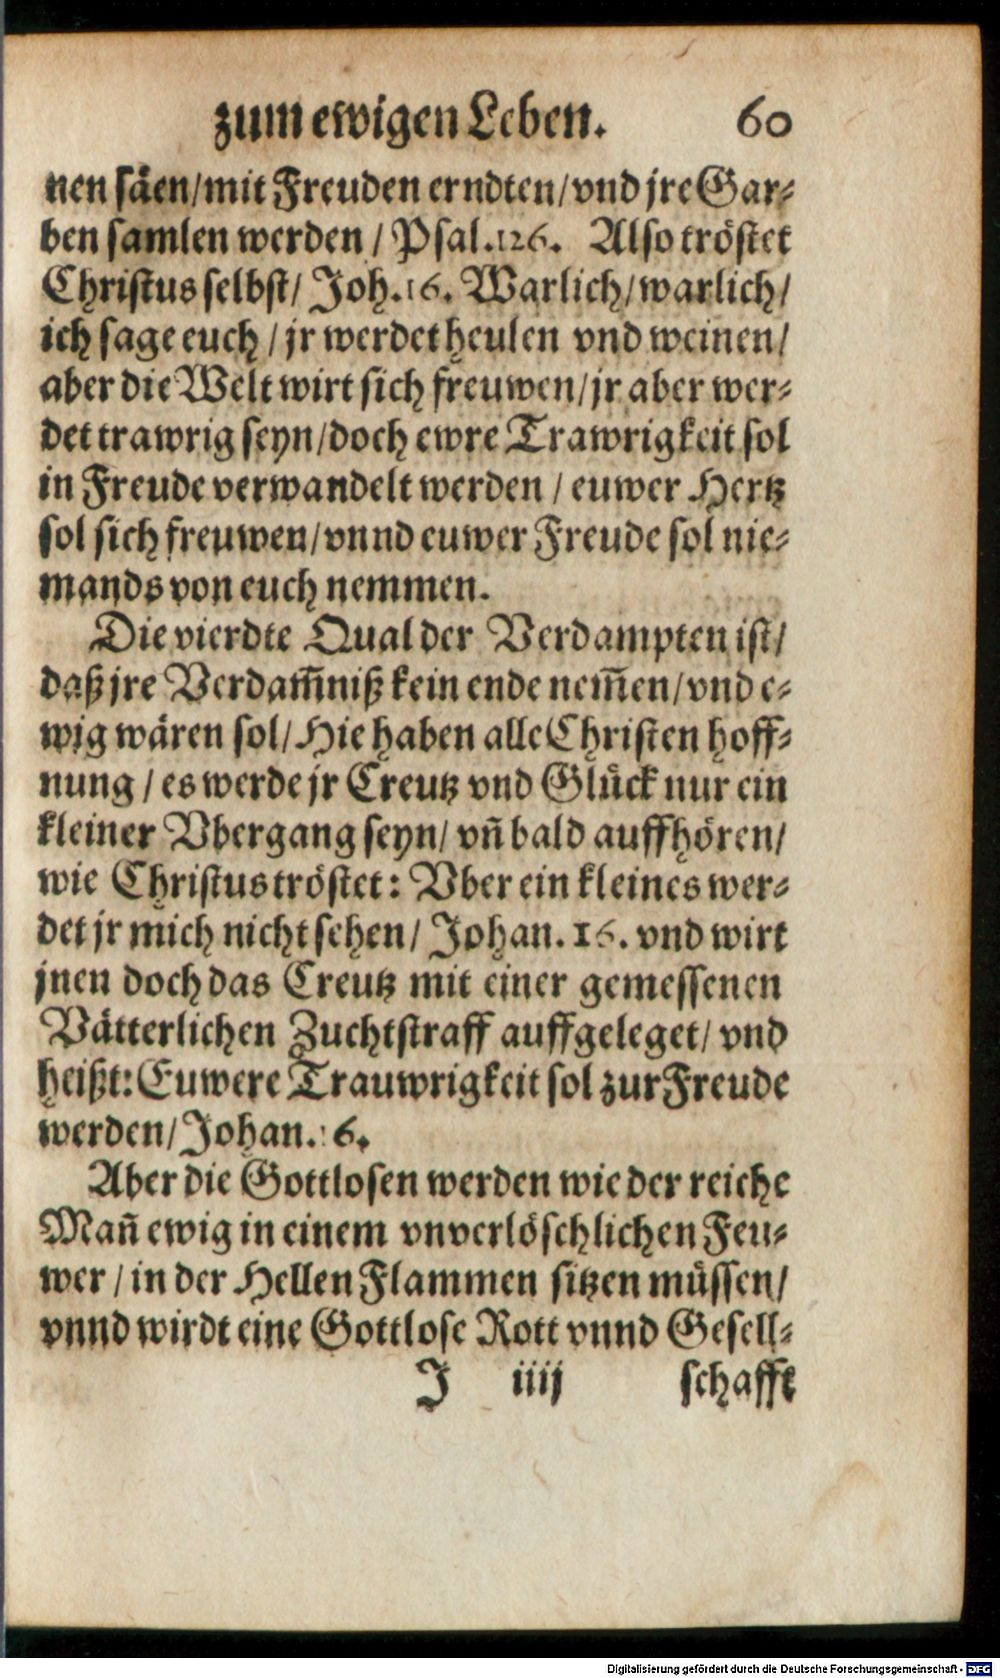 zum ewigen Leben. 60
nen säen/mit Freuden erndten/vnd jre Gar-
ben samlen werden / Psal.126. Also tröstet
Christus selbst/ Joh.16. Warlich/warlich/
ich sage euch / jr werdet heulen vnd weinen/
aber die Welt wirt sich freuwen/jr aber wer-
det trawrig seyn/doch ewre Trawrigkeit sol
in Freude verwandelt werden / euwer Hertz
sol sich freuwen/vnnd euwer Freude sol nie-
mands von euch nemmen.
Die vierdte Qual der Verdampten ist/
daß jre Verdam̄niß kein ende nem̄en/vnd e-
wig wären sol/ Hie haben alle Christen hoff-
nung / es werde jr Creutz vnd Glück nur ein
kleiner Vbergang seyn/ vn̄ bald auffhören/
wie Christus tröstet: Vber ein kleines wer-
det jr mich nicht sehen/ Johan. 16. vnd wirt
jnen doch das Creutz mit einer gemessenen
Vätterlichen Zuchtstraff auffgeleget/ vnd
heißt: Euwere Trauwrigkeit sol zur Freude
werden/Johan. 16.
Aber die Gottlosen werden wie der reiche
Man̄ ewig in einem vnverlöschlichen Feu-
wer / in der Hellen Flammen sitzen müssen/
vnnd wirdt eine Gottlose Rott vnnd Gesell-
J iiij schafft
Digitalisierung gefördert durch die Deutsche Forschungsgemeinschaft - DFG